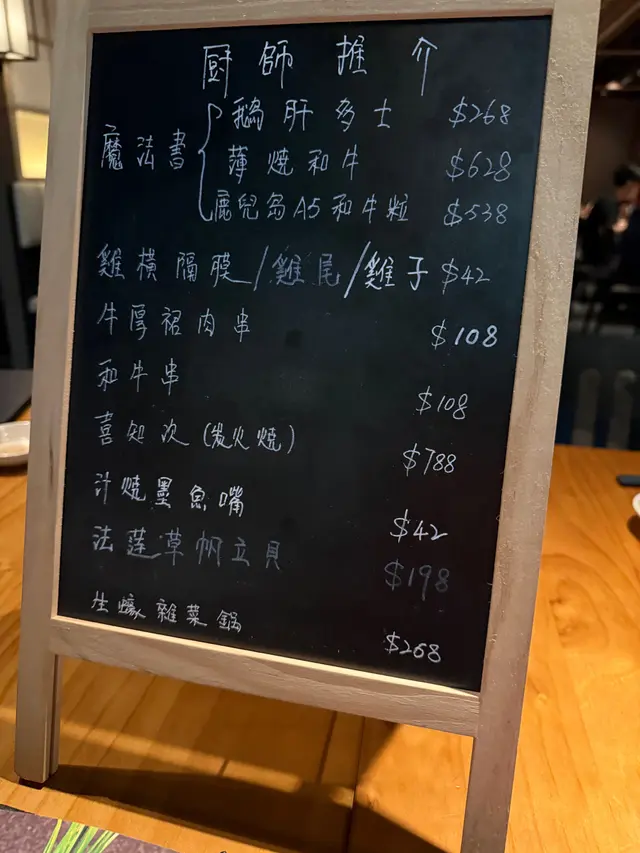 厨師推介
魔法書
鵝肝多士 $268
薄燒和牛 $628
鹿兒島A5和牛粒 $538
雞橫隔膜/雞尾/雞子 $42
牛厚裙肉串 $108
和牛串 $108
喜知次(炭火燒) $788
汁燒墨魚嘴 $42
法蓮草帆立貝 $198
生蠔雜菜鍋 $268